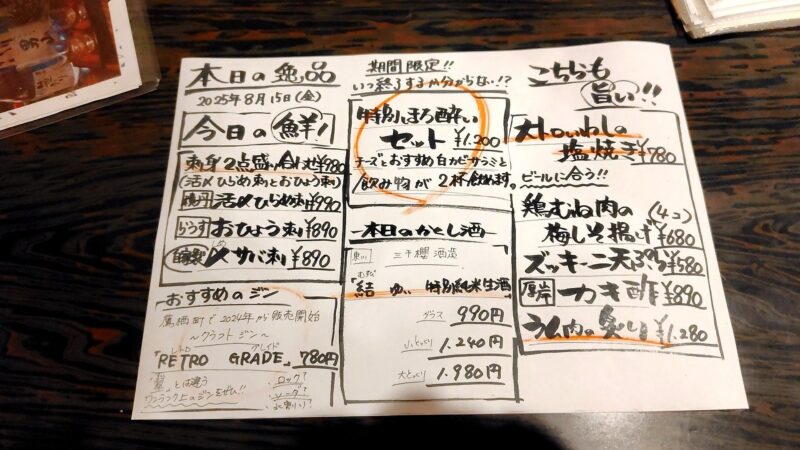 本日の逸品
2025年8月15日(金)
今日の鮮!
刺身2点盛り合わせ¥980
(活〆ひらめ刺とおひょう刺)
活〆ひらめ刺¥990
らうす おひょう刺¥890
自家製 〆サバ刺¥890
しめ
おすすめのジン
鷹栖町で2024年から販売開始
〜クラフトジン〜
レトロ グレイド
「RETRO GRADE」780円
とは違う
ワンランク上のジンをぜひ!!
ロック?
ソーダ?
水割り?
期間限定!!
いつ終了するか分からない!?
特別ほろ酔い
セット ¥1,200
チーズとおすすめ白カビサラミと
飲み物が2杯飲めます。
本日のかくし酒
東川 三千櫻酒造
むすび
結 ゆい 特別純米生酒
グラス 990円
小とっくり 1,240円
大とっくり 1,980円
こちらも
旨い!!
大トロいわしの
塩焼き¥780
ビールに合う!!
鶏むね肉の(4コ)
梅しそ揚げ¥680
ズッキーニ天ぷら¥580
厚岸 カキ酢¥890
ラム肉の炙り¥1,280